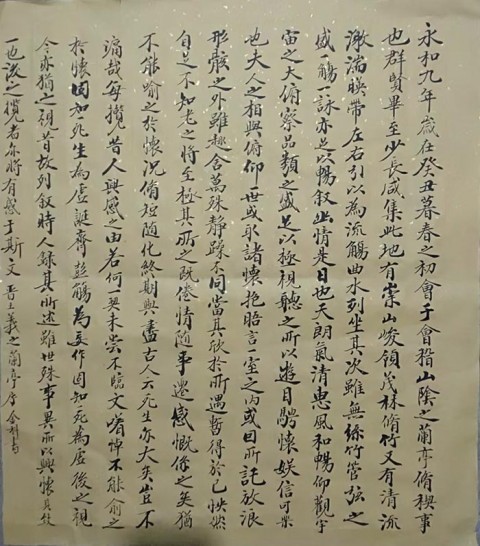 永和九年歲在癸丑暮春之初會于會稽山陰之蘭亭脩禊事
也群賢畢至少長咸集此地有崇山峻領茂林脩竹又有清流
激湍暎帶左右引以為流觴曲水列坐其次雖無絲竹管弦之
盛一觴一詠亦足以暢叙幽情是日也天朗氣清惠風和暢仰觀宇
宙之大俯察品類之盛足以極視聽之所以遊目騁懷娛信可樂
也夫人之相與俯仰一世或取諸懷抱晤言一室之内或因所託放浪
形骸之外雖趣舍萬殊靜躁不同當其欣於所遇暫得於己怏然
自足不知老之將至極其所之既倦情隨事遷感慨係之矣猶
不能喻之於懷況脩短隨化終期與盡古人云死生亦大矣豈不
痛哉每攬昔人興感之由若何一契未嘗不臨文嗟悼不能俞之
於懷固知死生為虛誕齊彭觴為妄作固知死為虛後之視
今亦猶之視昔故列叙時人錄其所述雖世殊事異所以興懷其致
一也後之攬者亦將有感于斯文 晉王羲之蘭亭序